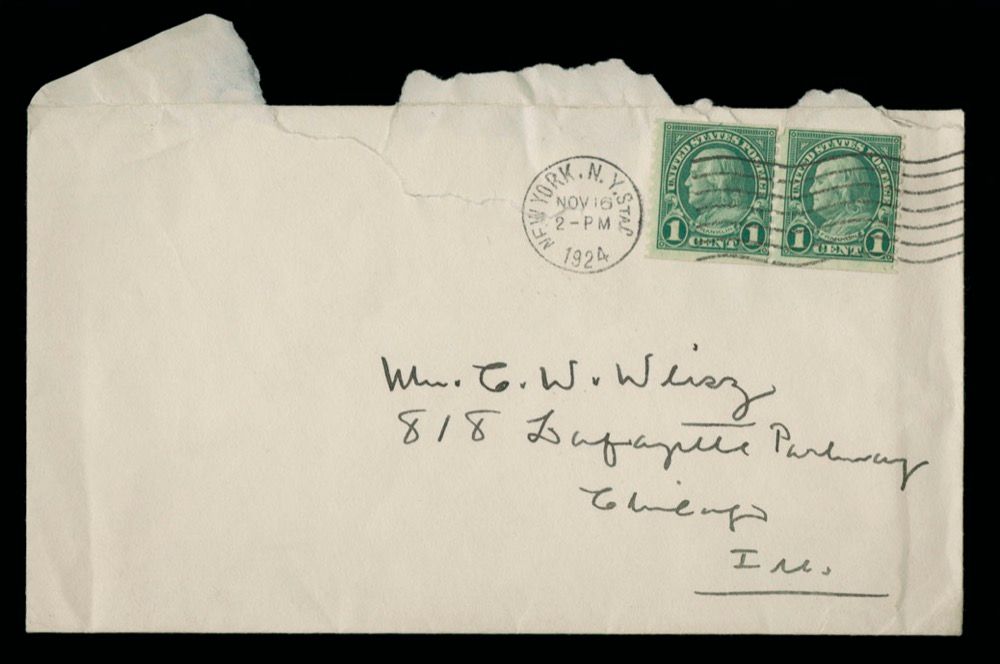 NEW YORK, N.Y. STA.
NOV 16
2-PM
1924
UNITED STATES POSTAGE
FRANKLIN
1 CENT 1
UNITED STATES POSTAGE
FRANKLIN
1 CENT 1
C. W. Weisz
818 Lafayette Parkway
Chicago
Ill.